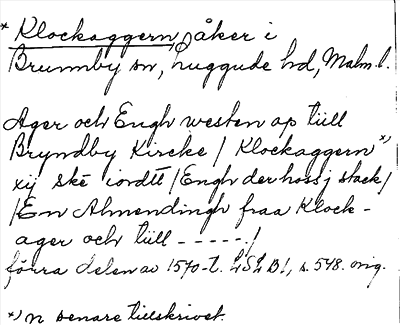 * Klockaggern, åker i
Brunnby sn, Luggude hd, Malm. l.
Ager och Engh westen op till
Bryndby Kircke / Klockaggern *)
xij ske iordtt / Engh der hoss j stack /
/ En Almendingh fraa Klock-
ager och till - - - - - . /
förra delen av 1570-t. LSLB 1, s. 548. orig.
*) n senare tillskrivet.